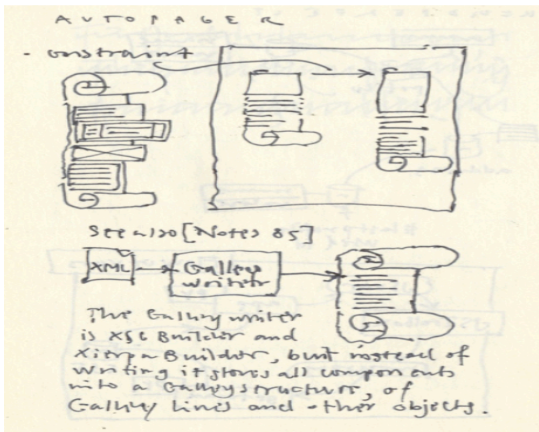 AUTOPAGER
- constraint
See also [Notes 85]
XML
Galley
writer
The Galley writer
is XSL Builder and
Xierpa Builder, but instead of
writing it stores all components
into a Galley structure, of
Galley lines and other objects.